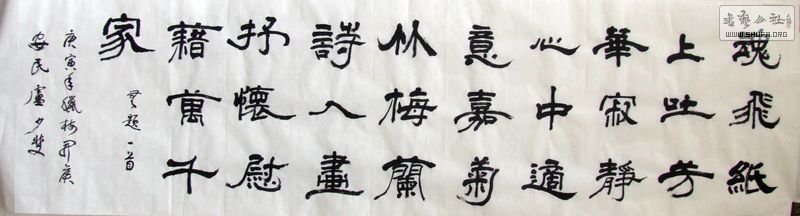 魂飛紙
上吐芳
華寂靜
心中適
意嘉菊
竹梅蘭
詩入畫
抒懷慰
藉萬千
家
无題一首
庚寅年臘梅開候
安民盧少
書藝公社
WWW.SHUFA.ORG